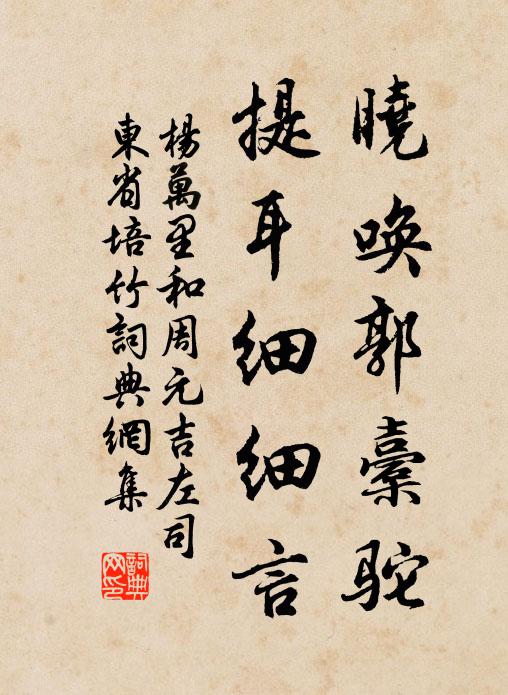 曉唤郭橐駝
提耳細細言
楊萬里和周元吉左司
東省培竹詞典網集
詞典網印